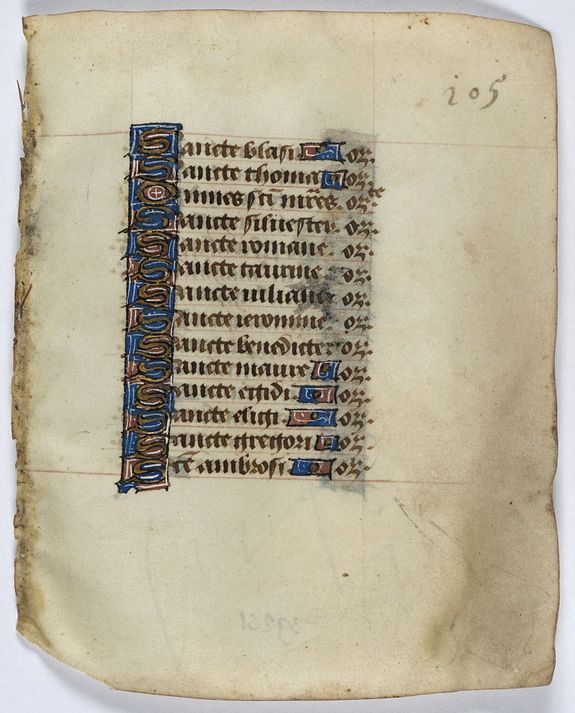 105
Sancte blasi or.
Sancte thoma or.
Omnes sci mres or te
Sancte silvester or.
Sancte romane or.
Sancte taurine or.
Sancte iuliane or.
Sancte ieronime or.
Sancte benedicte or.
Sancte maure or.
Sancte egidi or.
Sancte eligi or.
Sancte gregori or.
Sce ambrosi or.